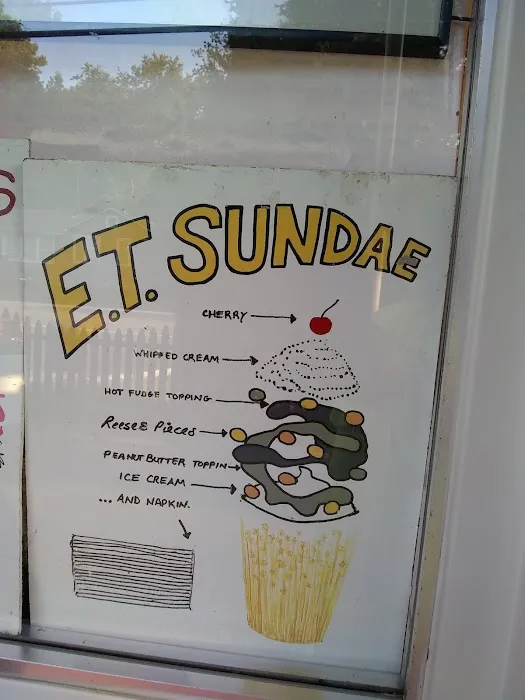 S
E.T. SUNDAE
CHERRY
WHIPPED CREAM
HOT FUDGE TOPPING
Reese's Pieces
PEANUT BUTTER TOPPIN
ICE CREAM
... AND NAPKIN.